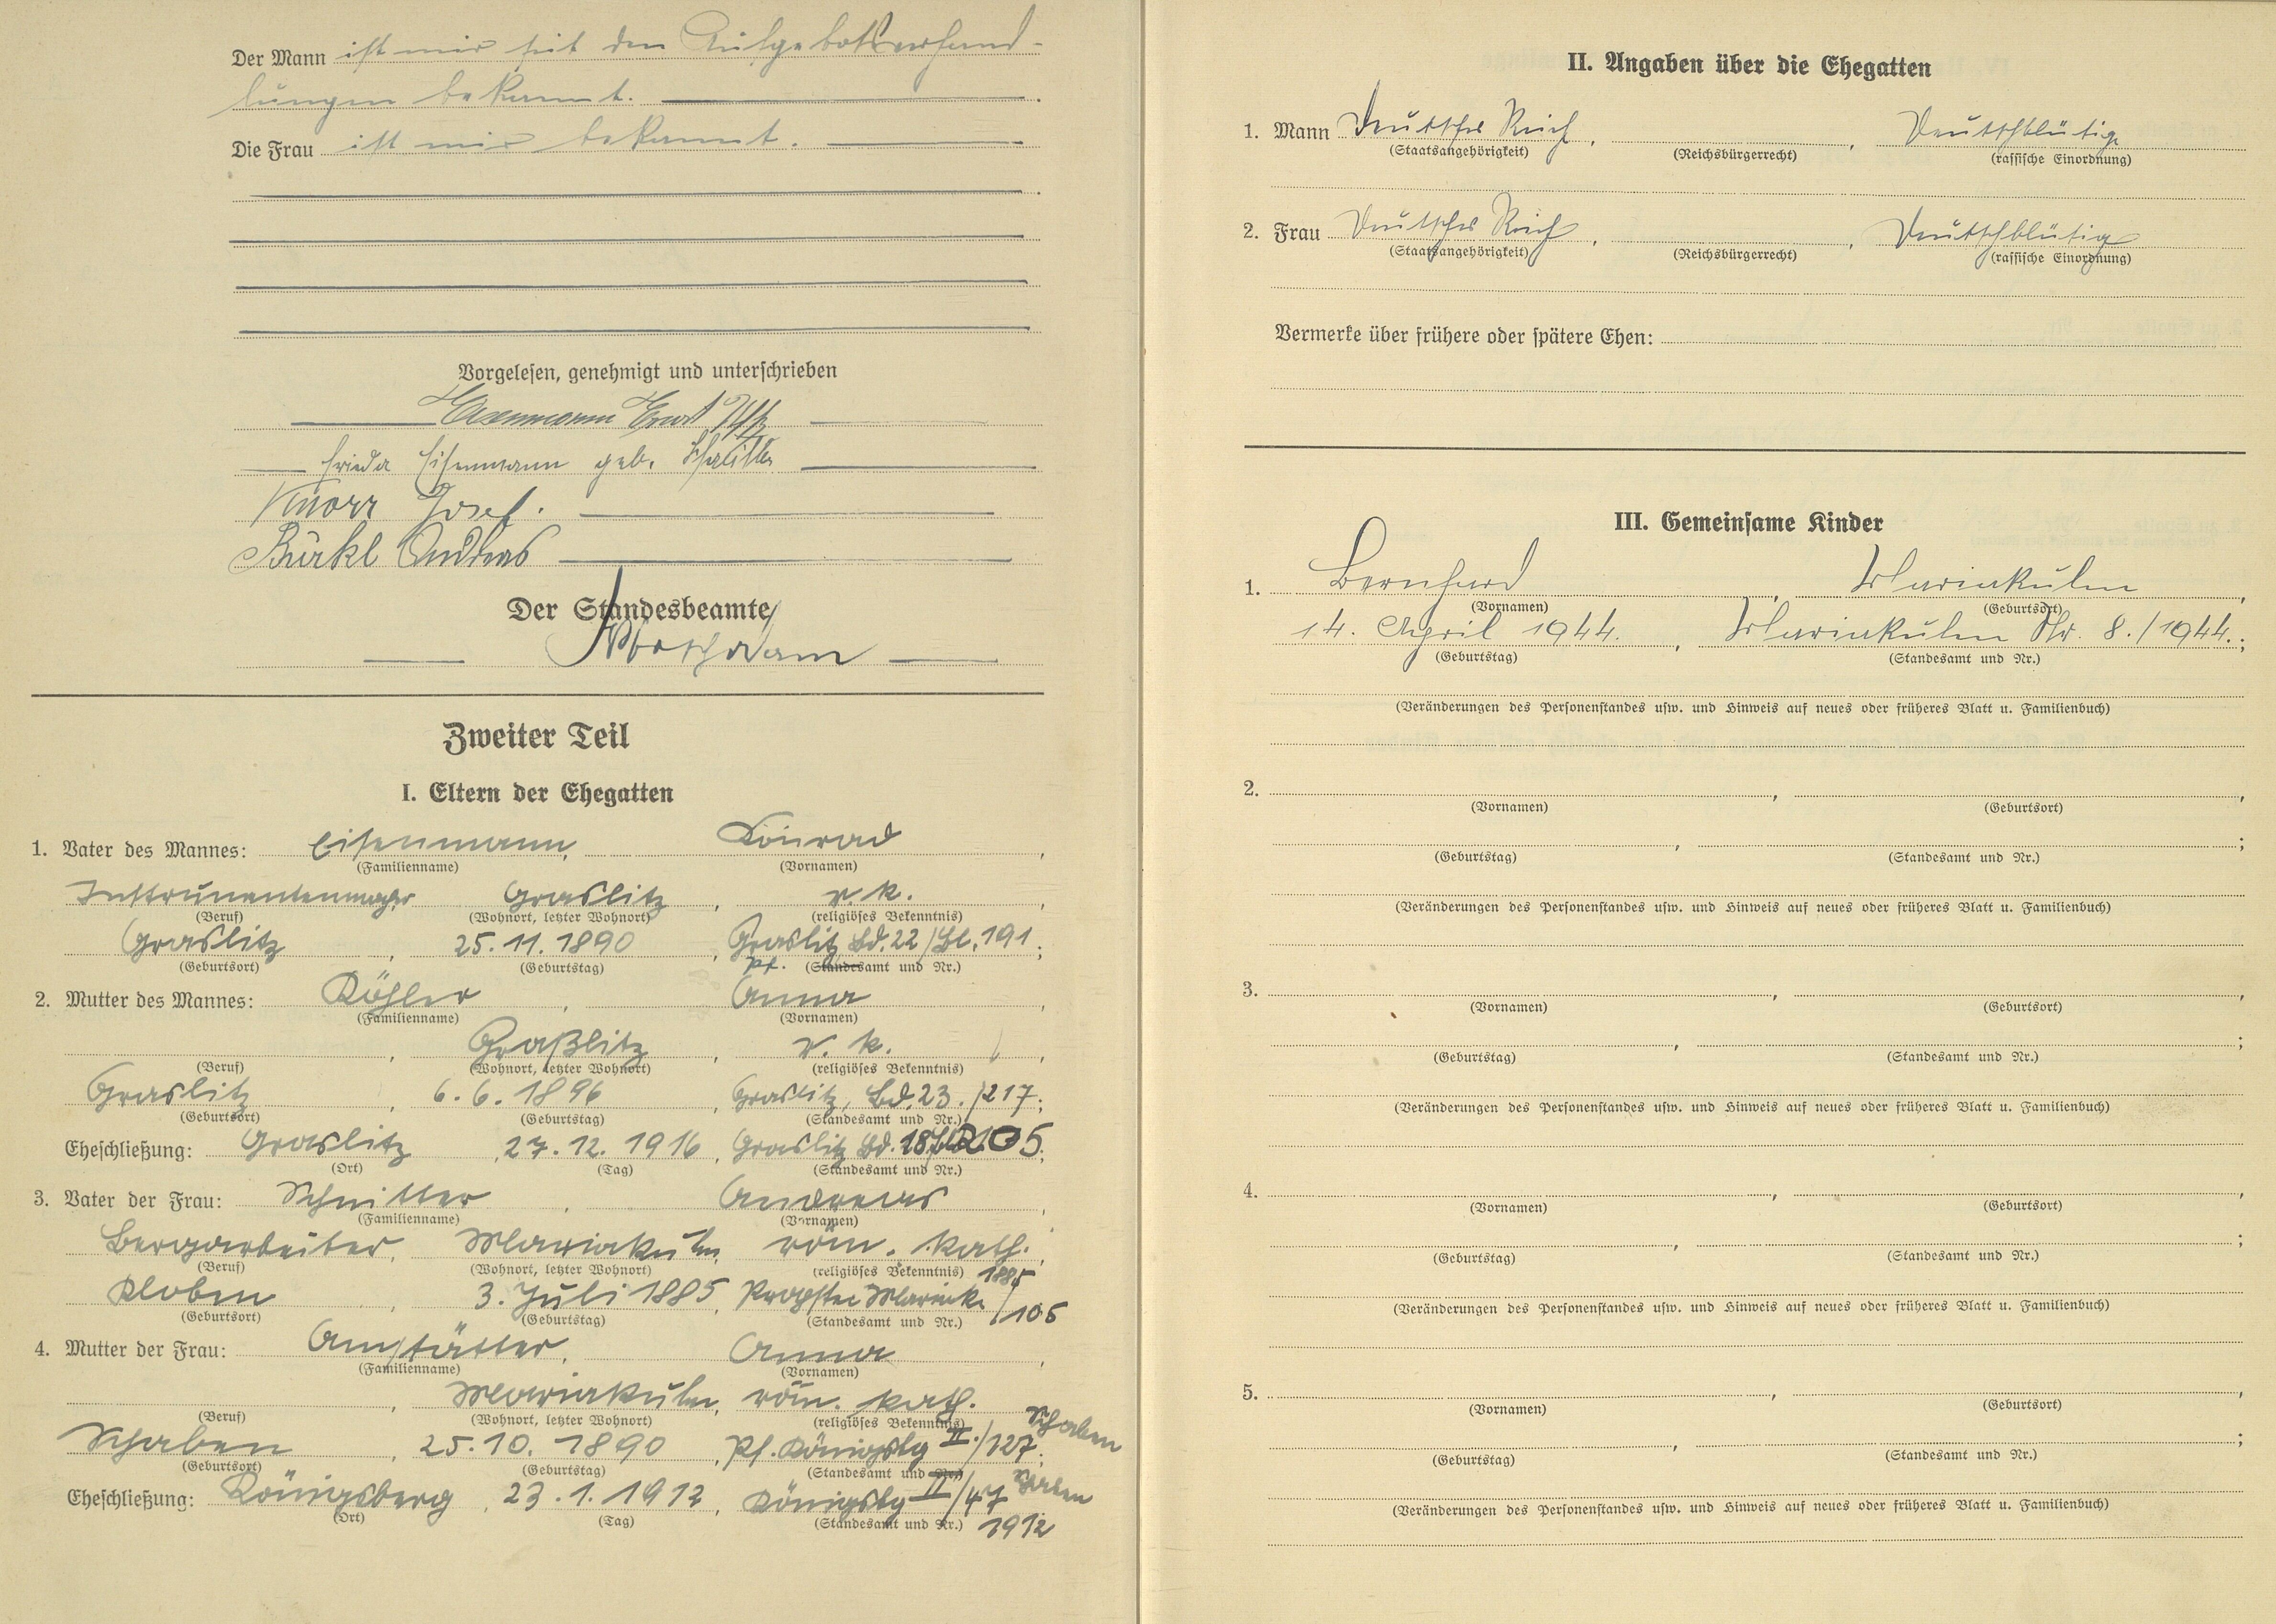 Der Mann ist mir seit den Aufgebotsverhand-
lungen bekannt.
Die Frau ist mir bekannt.
Vorgelesen, genehmigt und unterschrieben
Eisenmann Ernst
Frieda Eisenmann geb.
Knorr Josef.
Bürkl Andreas
Der Standesbeamte
Zweiter Teil
I. Eltern der Ehegatten
1. Vater des Mannes: Eisenmann, Konrad,
(Familienname) (Vornamen)
Instrumentenmacher Graslitz, r. k.,
(Beruf) (Wohnort, letzter Wohnort) (religiöses Bekenntnis)
Graslitz, 25.11.1890, Graslitz Bd. 22/Bl. 191;
(Geburtsort) (Geburtstag) Pf. (Standesamt und Nr.)
2. Mutter des Mannes: Köhler, Anna,
(Familienname) (Vornamen)
, Graßlitz, r. k.,
(Beruf) (Wohnort, letzter Wohnort) (religiöses Bekenntnis)
Graslitz, 6.6.1896, Graslitz, Bd. 23./217;
(Geburtsort) (Geburtstag) (Standesamt und Nr.)
Eheschließung: Graslitz, 27.12.1916, Graslitz Bd. 18/205;
(Ort) (Tag) (Standesamt und Nr.)
3. Vater der Frau: Schnitter, Andreas,
(Familienname) (Vornamen)
Bergarbeiter, Mariakulm, röm. kath.,
(Beruf) (Wohnort, letzter Wohnort) (religiöses Bekenntnis) 1885
Kloben, 3. Juli 1885, Propstei Mariak. /105
(Geburtsort) (Geburtstag) (Standesamt und Nr.)
4. Mutter der Frau: Amstätter, Anna,
(Familienname) (Vornamen)
, Mariakulm, röm. kath.
(Beruf) (Wohnort, letzter Wohnort) (religiöses Bekenntnis) Schaben
Schaben, 25.10.1890, Pf. Königsbg II./127;
(Geburtsort) (Geburtstag) (Standesamt und Nr.) Schaben
Eheschließung: Königsberg, 23.1.1912, Königsbg II/47
(Ort) (Tag) (Standesamt und Nr.) 1912
II. Angaben über die Ehegatten
1. Mann Deutsches Reich, , Deutschblütig
(Staatsangehörigkeit) (Reichsbürgerrecht) (rassische Einordnung)
2. Frau Deutsches Reich, , Deutschblütig
(Staatsangehörigkeit) (Reichsbürgerrecht) (rassische Einordnung)
Vermerke über frühere oder spätere Ehen:
III. Gemeinsame Kinder
1. Bernhard, Mariakulm,
(Vornamen) (Geburtsort)
14. April 1944., Mariakulm Nr. 8./1944.;
(Geburtstag) (Standesamt und Nr.)
(Veränderungen des Personenstandes usw. und Hinweis auf neues oder früheres Blatt u. Familienbuch)
2. , ,
(Vornamen) (Geburtsort)
, ;
(Geburtstag) (Standesamt und Nr.)
(Veränderungen des Personenstandes usw. und Hinweis auf neues oder früheres Blatt u. Familienbuch)
3. , ,
(Vornamen) (Geburtsort)
, ;
(Geburtstag) (Standesamt und Nr.)
(Veränderungen des Personenstandes usw. und Hinweis auf neues oder früheres Blatt u. Familienbuch)
4. , ,
(Vornamen) (Geburtsort)
, ;
(Geburtstag) (Standesamt und Nr.)
(Veränderungen des Personenstandes usw. und Hinweis auf neues oder früheres Blatt u. Familienbuch)
5. , ,
(Vornamen) (Geburtsort)
, ;
(Geburtstag) (Standesamt und Nr.)
(Veränderungen des Personenstandes usw. und Hinweis auf neues oder früheres Blatt u. Familienbuch)